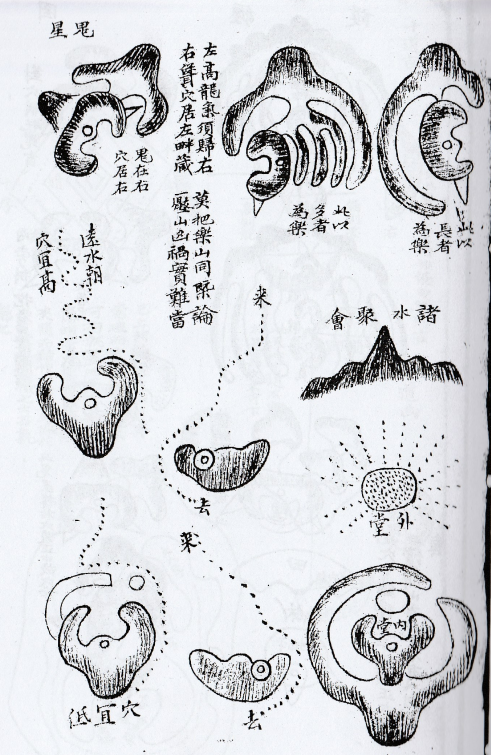 此以
長者
為樂
此以
多者
為樂
左高龍氣須歸右
右聳穴居左畔藏
莫把樂山同槩論
壓山凶禍實難當
鬼星
鬼在右
穴居右
諸水聚會
來
去
遠水朝
穴宜高
外堂
內堂
來
去
穴宜低